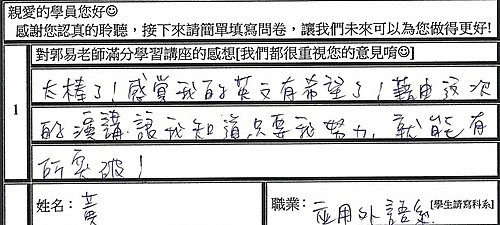 親愛的學員您好☺
感謝您認真的聆聽，接下來請簡單填寫問卷，讓我們未來可以為您做得更好!
對郭易老師滿分學習講座的感想[我們都很重視您的意見唷☺]
1
太棒了！感覺我的英文有希望了！藉由這次
的演講,讓我知道只要我努力,就能有
所突破！
姓名：黃
職業：應用外語系 [學生請寫科系]